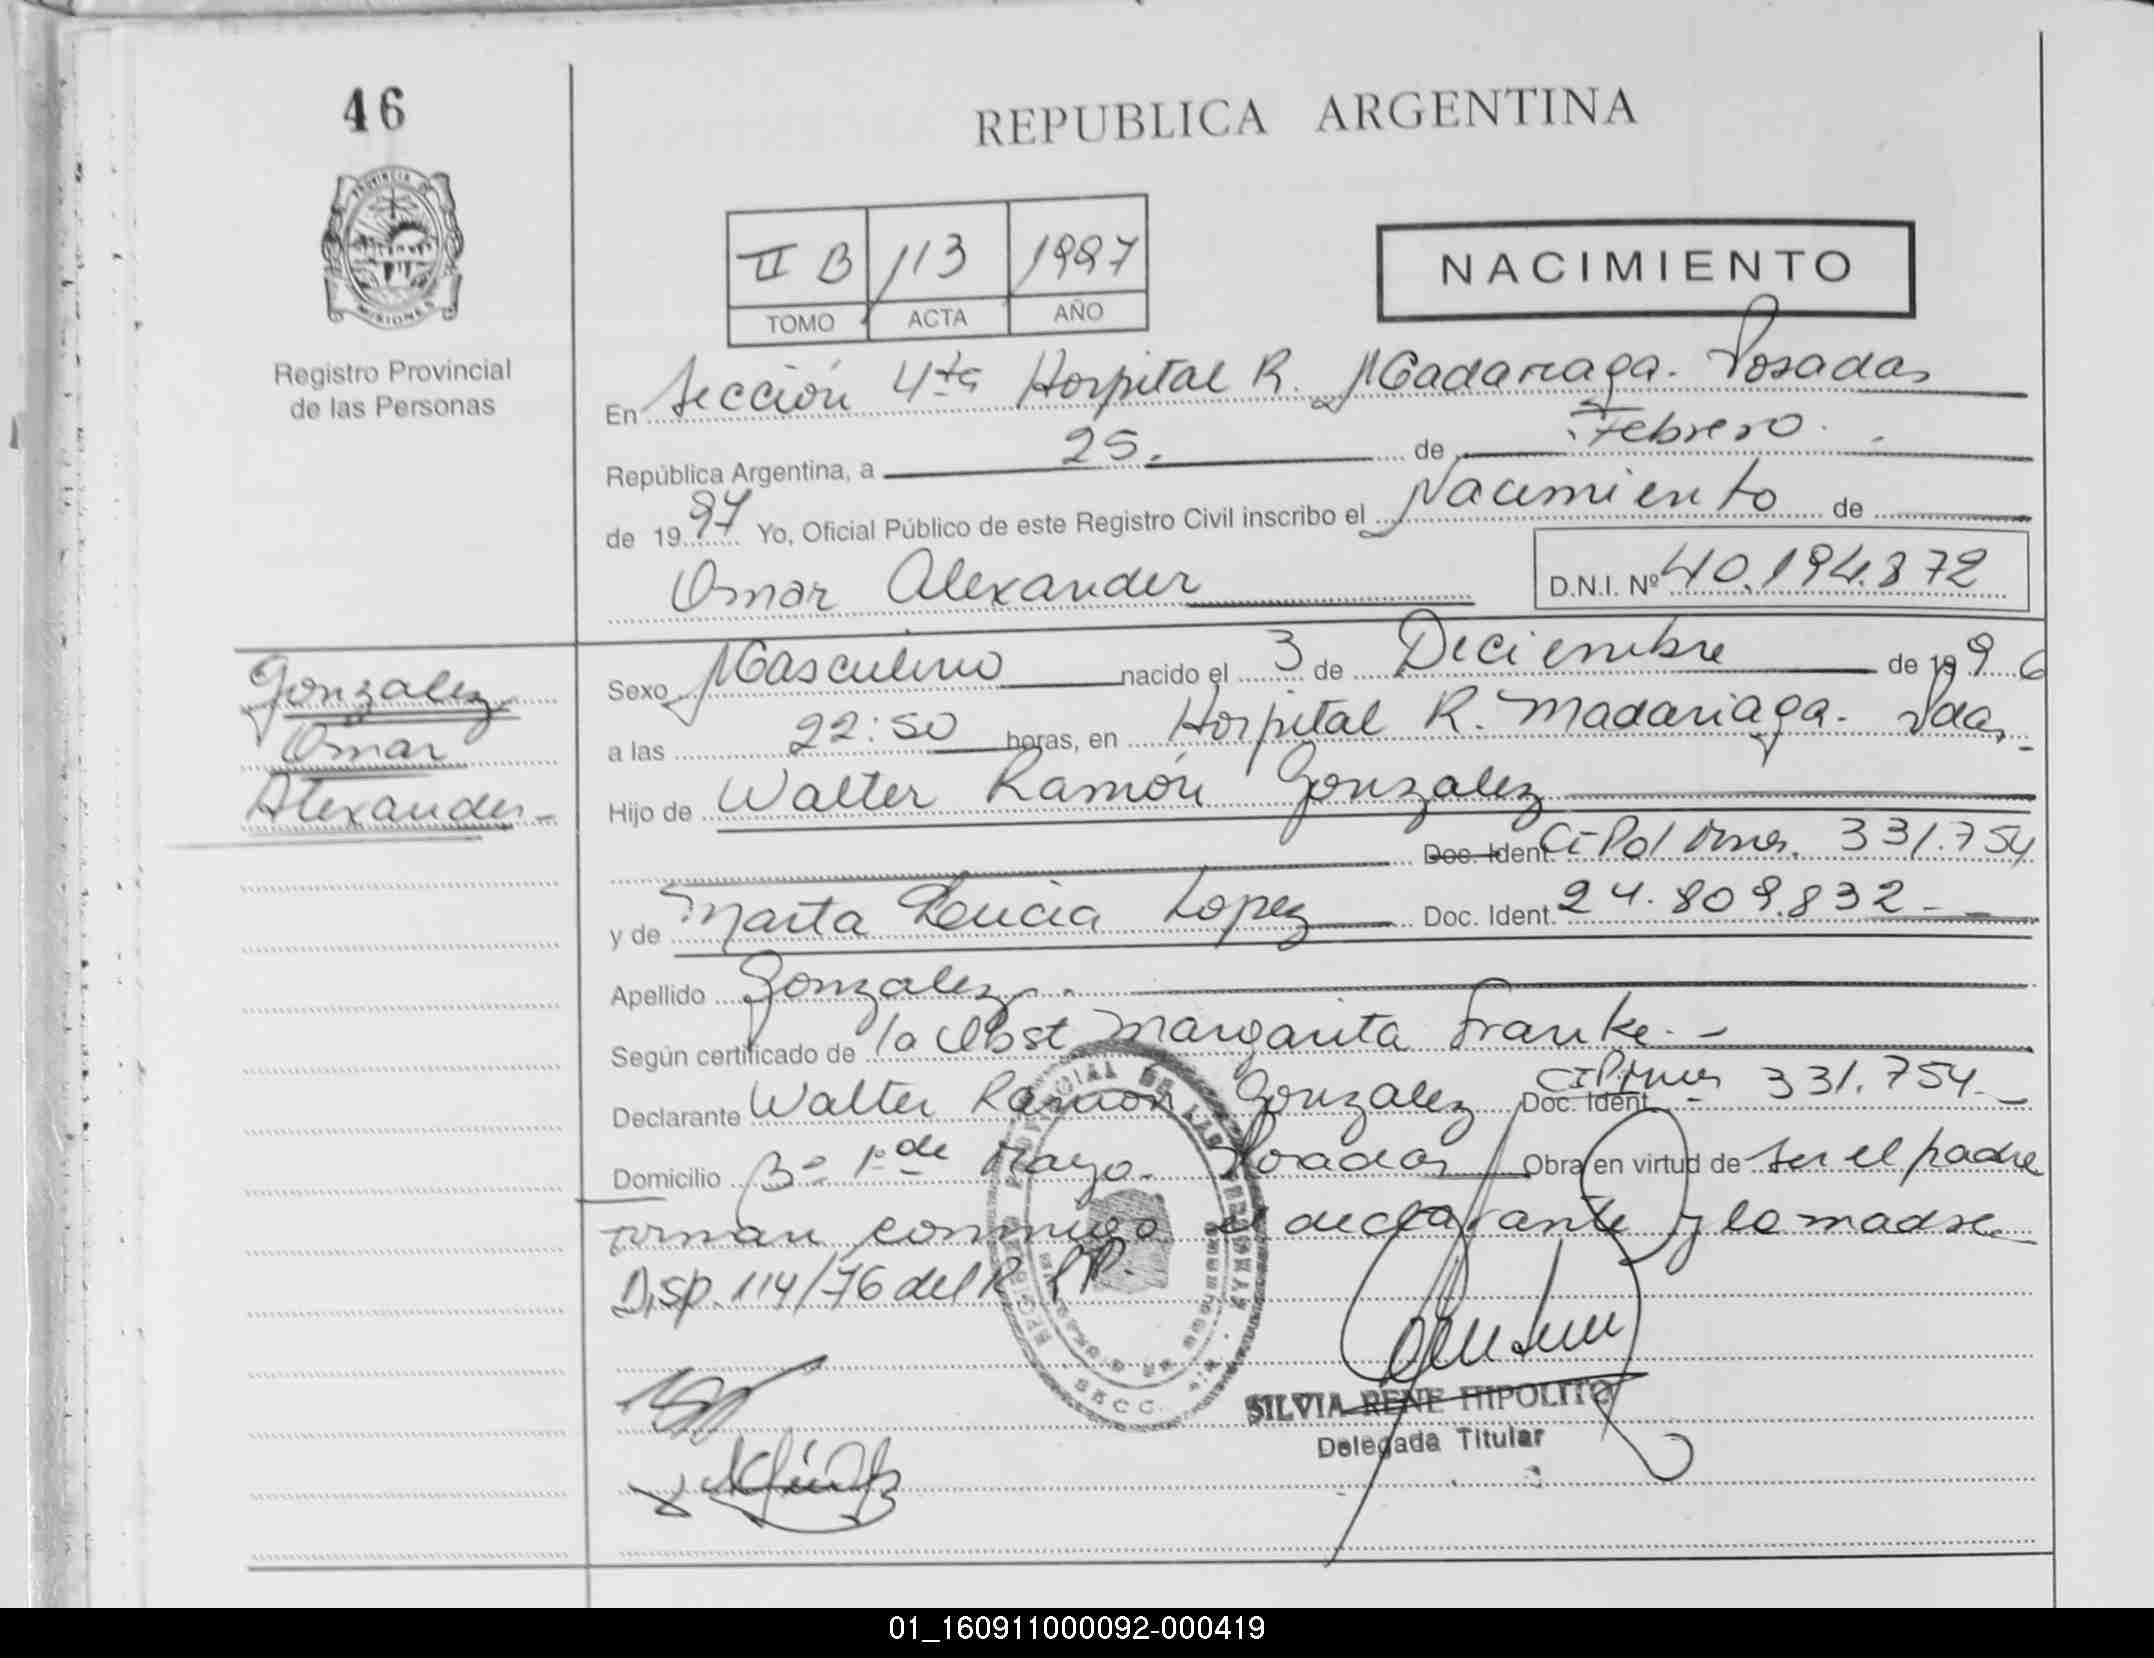 46
REPUBLICA ARGENTINA
PROVINCIA DE
MISIONES
Registro Provincial
de las Personas
II B 113 1997
TOMO ACTA AÑO
NACIMIENTO
En Sección 4ta Hospital R. Madariaga. Posadas
República Argentina, a 25. de Febrero.
de 1997 Yo, Oficial Público de este Registro Civil inscribo el Nacimiento de
Omar Alexander D.N.I. Nº 40.194.872
Gonzalez
Omar
Alexander -
Sexo Masculino nacido el 3 de Deciembre de 1996
a las 22:50 horas, en Hospital R. Madariaga. Pdas. -
Hijo de Walter Ramón Gonzalez
Doc. Ident. Ci Pol Mnes. 331.754
y de Marta Lucia Lopez Doc. Ident. 24.809.832 - -
Apellido Gonzalez. -
Según certificado de la Obst Margarita Franke. -
Declarante Walter Ramón Gonzalez Doc. Ident. CIPMnes 331.754. -
Domicilio Bº 1º de Mayo. Posadas Obra en virtud de ser el padre
firman conmigo el declarante y la madre
Disp. 114/76 del R.P.P.
SILVIA RENE HIPOLITO
Delegada Titular
01_160911000092-000419